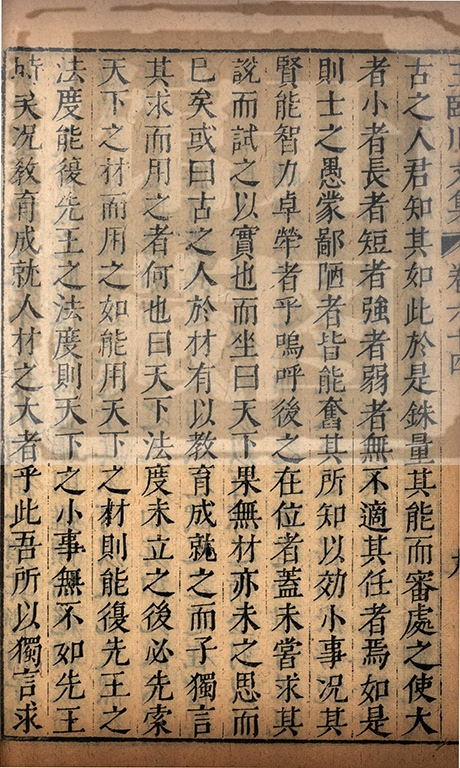 王臨川文集 卷六十四 九
古之人君知其如此於是銖量其能而審處之使大
者小者長者短者強者弱者無不適其任者焉如是
則士之愚蒙鄙陋者皆能奮其所知以効小事况其
賢能智力卓犖者乎嗚呼後之在位者蓋未嘗求其
說而試之以實也而坐曰天下果無材亦未之思而
已矣或曰古之人於材有以教育成就之而子獨言
其求而用之者何也曰天下法度未立之後必先索
天下之材而用之如能用天下之材則能復先王之
法度能復先王之法度則天下之小事無不如先王
時矣况教育成就人材之大者乎此吾所以獨言求